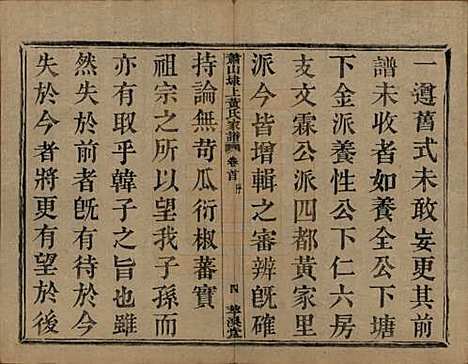 一遵舊式未敢妄更其前
譜未收者如養全公下塘
下金派養性公下仁六房
支文霖公派四都黃家里
派今皆增輯之審辨旣確
蕭山埭上黃氏家譜 卷首 序 四
持論無苛瓜衍椒蕃實
祖宗之所以望我子孫而
亦有取乎韓子之旨也雖
然失於前者旣有待於今
失於今者將更有望於後